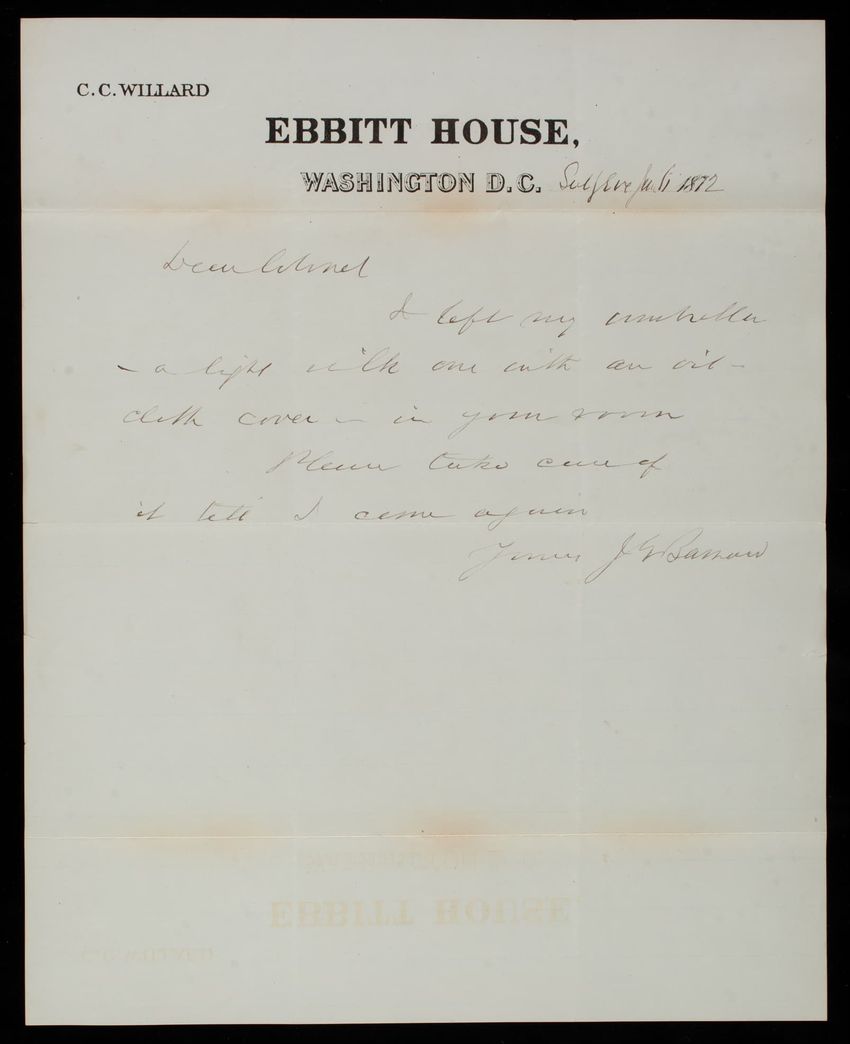 C. C. WILLARD
EBBITT HOUSE,
WASHINGTON D.C. 1872
Dear Colonel
I left my umbrella
- a light silk one with an oil-
cloth cover - in your room
Please take care of
it till I come again
Yours J G Barnard